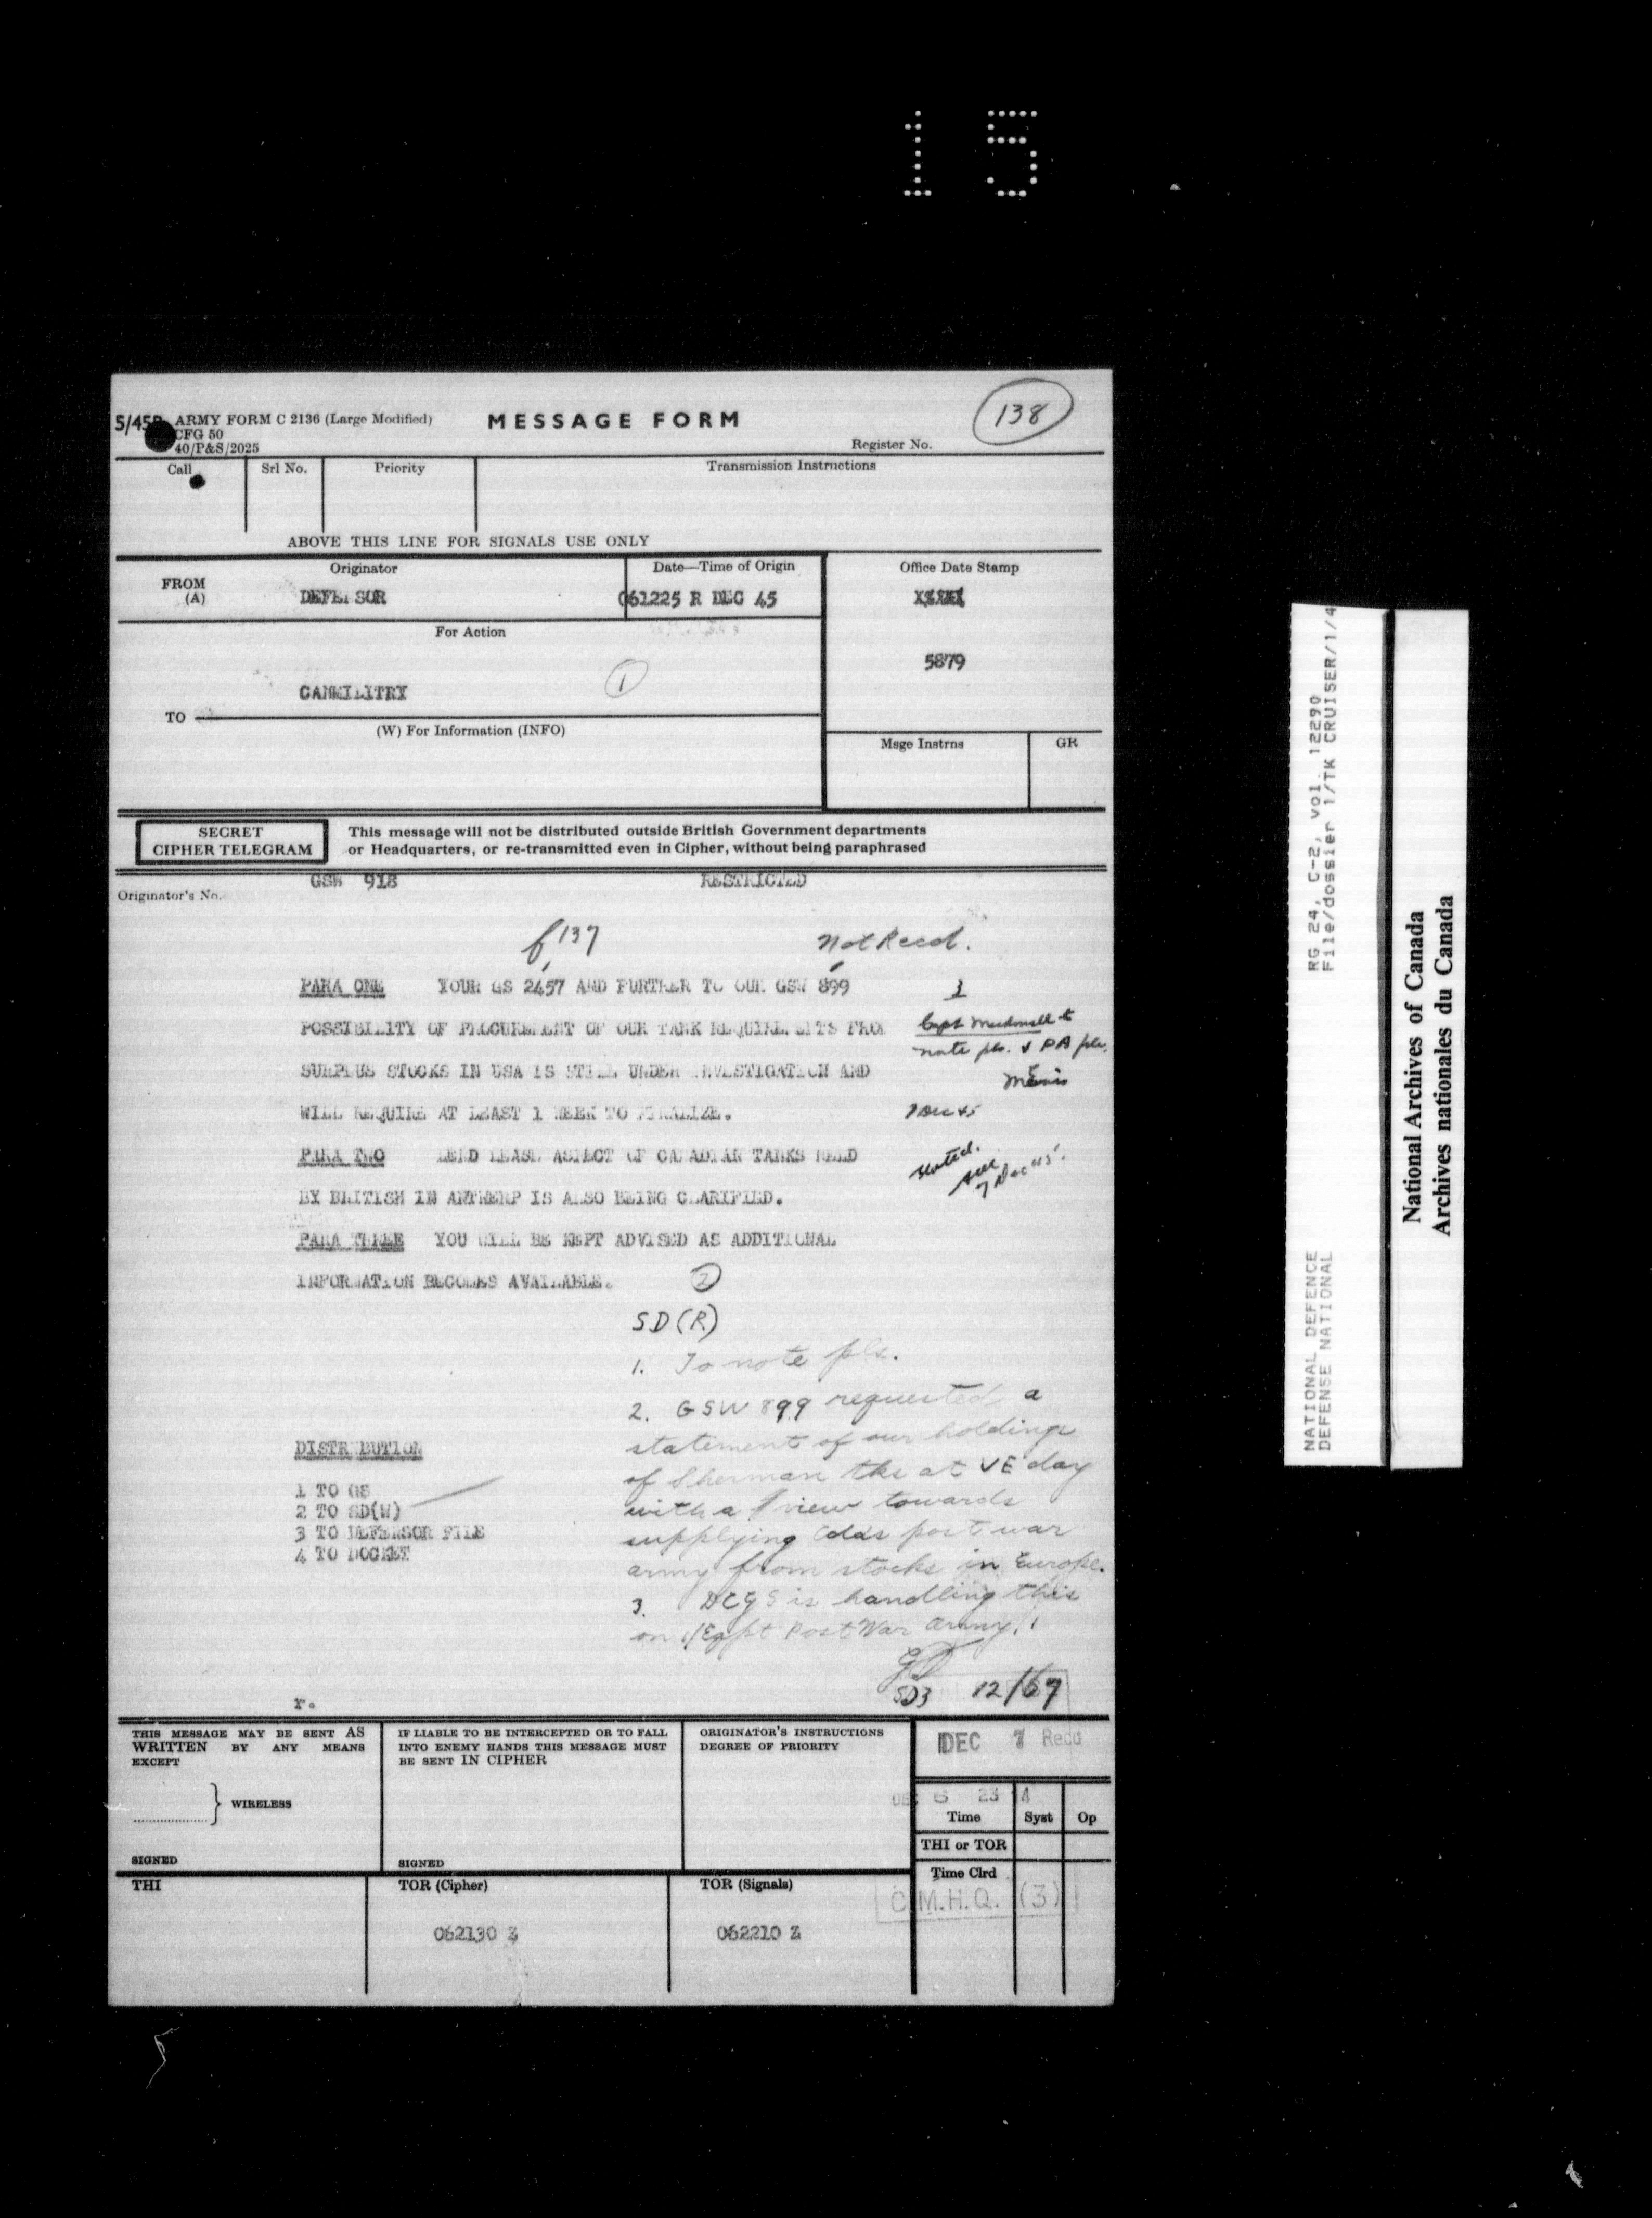 15
138
S/45
ARMY FORM C 2136 (Large Modified)
CFG 50
40/P&S/2025
MESSAGE FORM
Register No.
Call
Srl No.
Priority
Transmission Instructions
ABOVE THIS LINE FOR SIGNALS USE ONLY
FROM
(A)
Originator
DEFENSOR
Date—Time of Origin
061225 R DEC 45
Office Date Stamp
5879
For Action
1
CANMILITRY
TO
(W) For Information (INFO)
Msge Instrns
GR
SECRET
CIPHER TELEGRAM
This message will not be distributed outside British Government departments
or Headquarters, or re-transmitted even in Cipher, without being paraphrased
Originator's No.
GSW 918
RESTRICTED
f 137
Not Recd.
PARA ONE YOUR GS 2457 AND FURTHER TO OUR GSW 899
POSSIBILITY OF PROCUREMENT OF OUR TANK REQUIREMENTS FROM
SURPLUS STOCKS IN USA IS STILL UNDER INVESTIGATION AND
WILL REQUIRE AT LEAST 1 WEEK TO FINALIZE.
PARA TWO LEND LEASE ASPECT OF CANADIAN TANKS HELD
BY BRITISH IN ANTWERP IS ALSO BEING CLARIFIED.
PARA THREE YOU WILL BE KEPT ADVISED AS ADDITIONAL
INFORMATION BECOMES AVAILABLE.
3
Capt
note pls. & PA pls.
7 Dec 45
Noted.
7 Dec 45.
2
SD(R)
1. To note pls.
2. GSW 899 requested a
statement of our holdings
of Sherman tks at VE day
with a view towards
supplying Cdas post war
army from stocks in Europe.
3. DCGS is handling this
on 1/Eqpt Post War Army/1
SD3 12/67
DISTRIBUTION
1 TO GS
2 TO SD(W)
3 TO DEFENSOR FILE
4 TO DOCKET
r.
THIS MESSAGE MAY BE SENT AS
WRITTEN BY ANY MEANS
EXCEPT
WIRELESS
SIGNED
IF LIABLE TO BE INTERCEPTED OR TO FALL
INTO ENEMY HANDS THIS MESSAGE MUST
BE SENT IN CIPHER
SIGNED
ORIGINATOR'S INSTRUCTIONS
DEGREE OF PRIORITY
DEC 7 Recd
DEC 6 23 4
Time
Syst
Op
THI or TOR
Time Clrd
C.M.H.Q. (3)
THI
TOR (Cipher)
062130 Z
TOR (Signals)
062210 Z
NATIONAL DEFENCE RG 24, C-2, vol. 12290
DEFENSE NATIONAL File/dossier 1/TK CRUISER/1/4
National Archives of Canada
Archives nationales du Canada